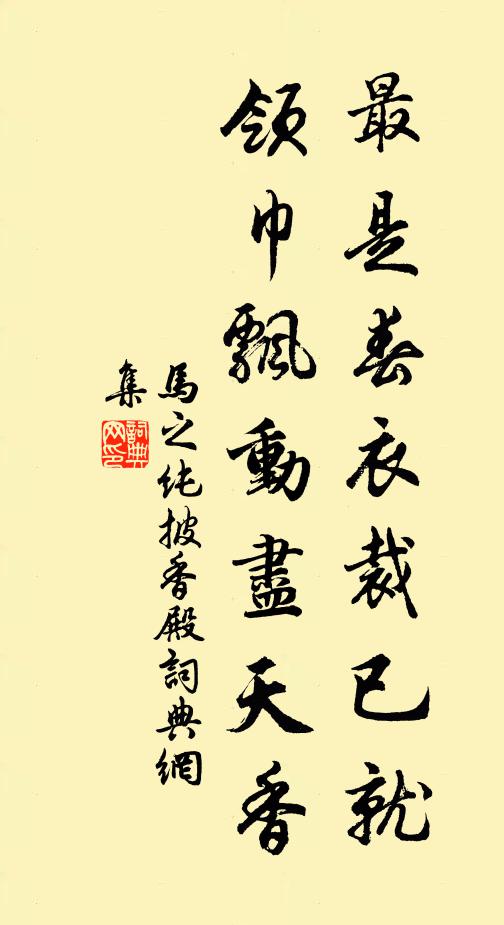 最是春衣裁已就
領巾飄動盡天香
馬之純披香殿詞典網
集
詞典
网印